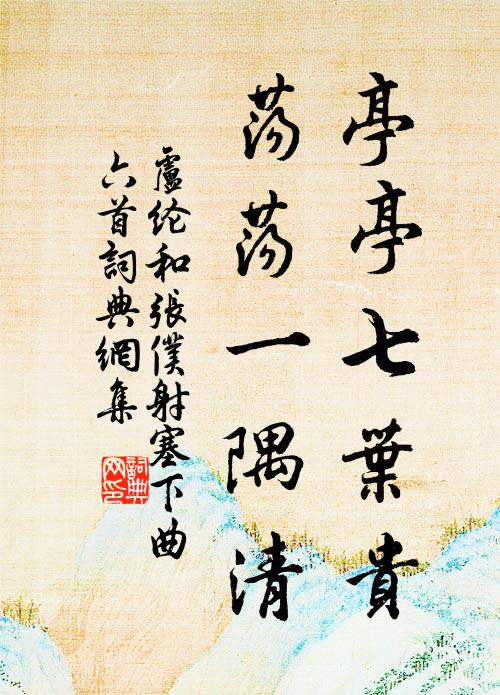 亭亭七葉貴
蕩蕩一隅清
盧纶和張僕射塞下曲
六首詞典網集
詞典
网印